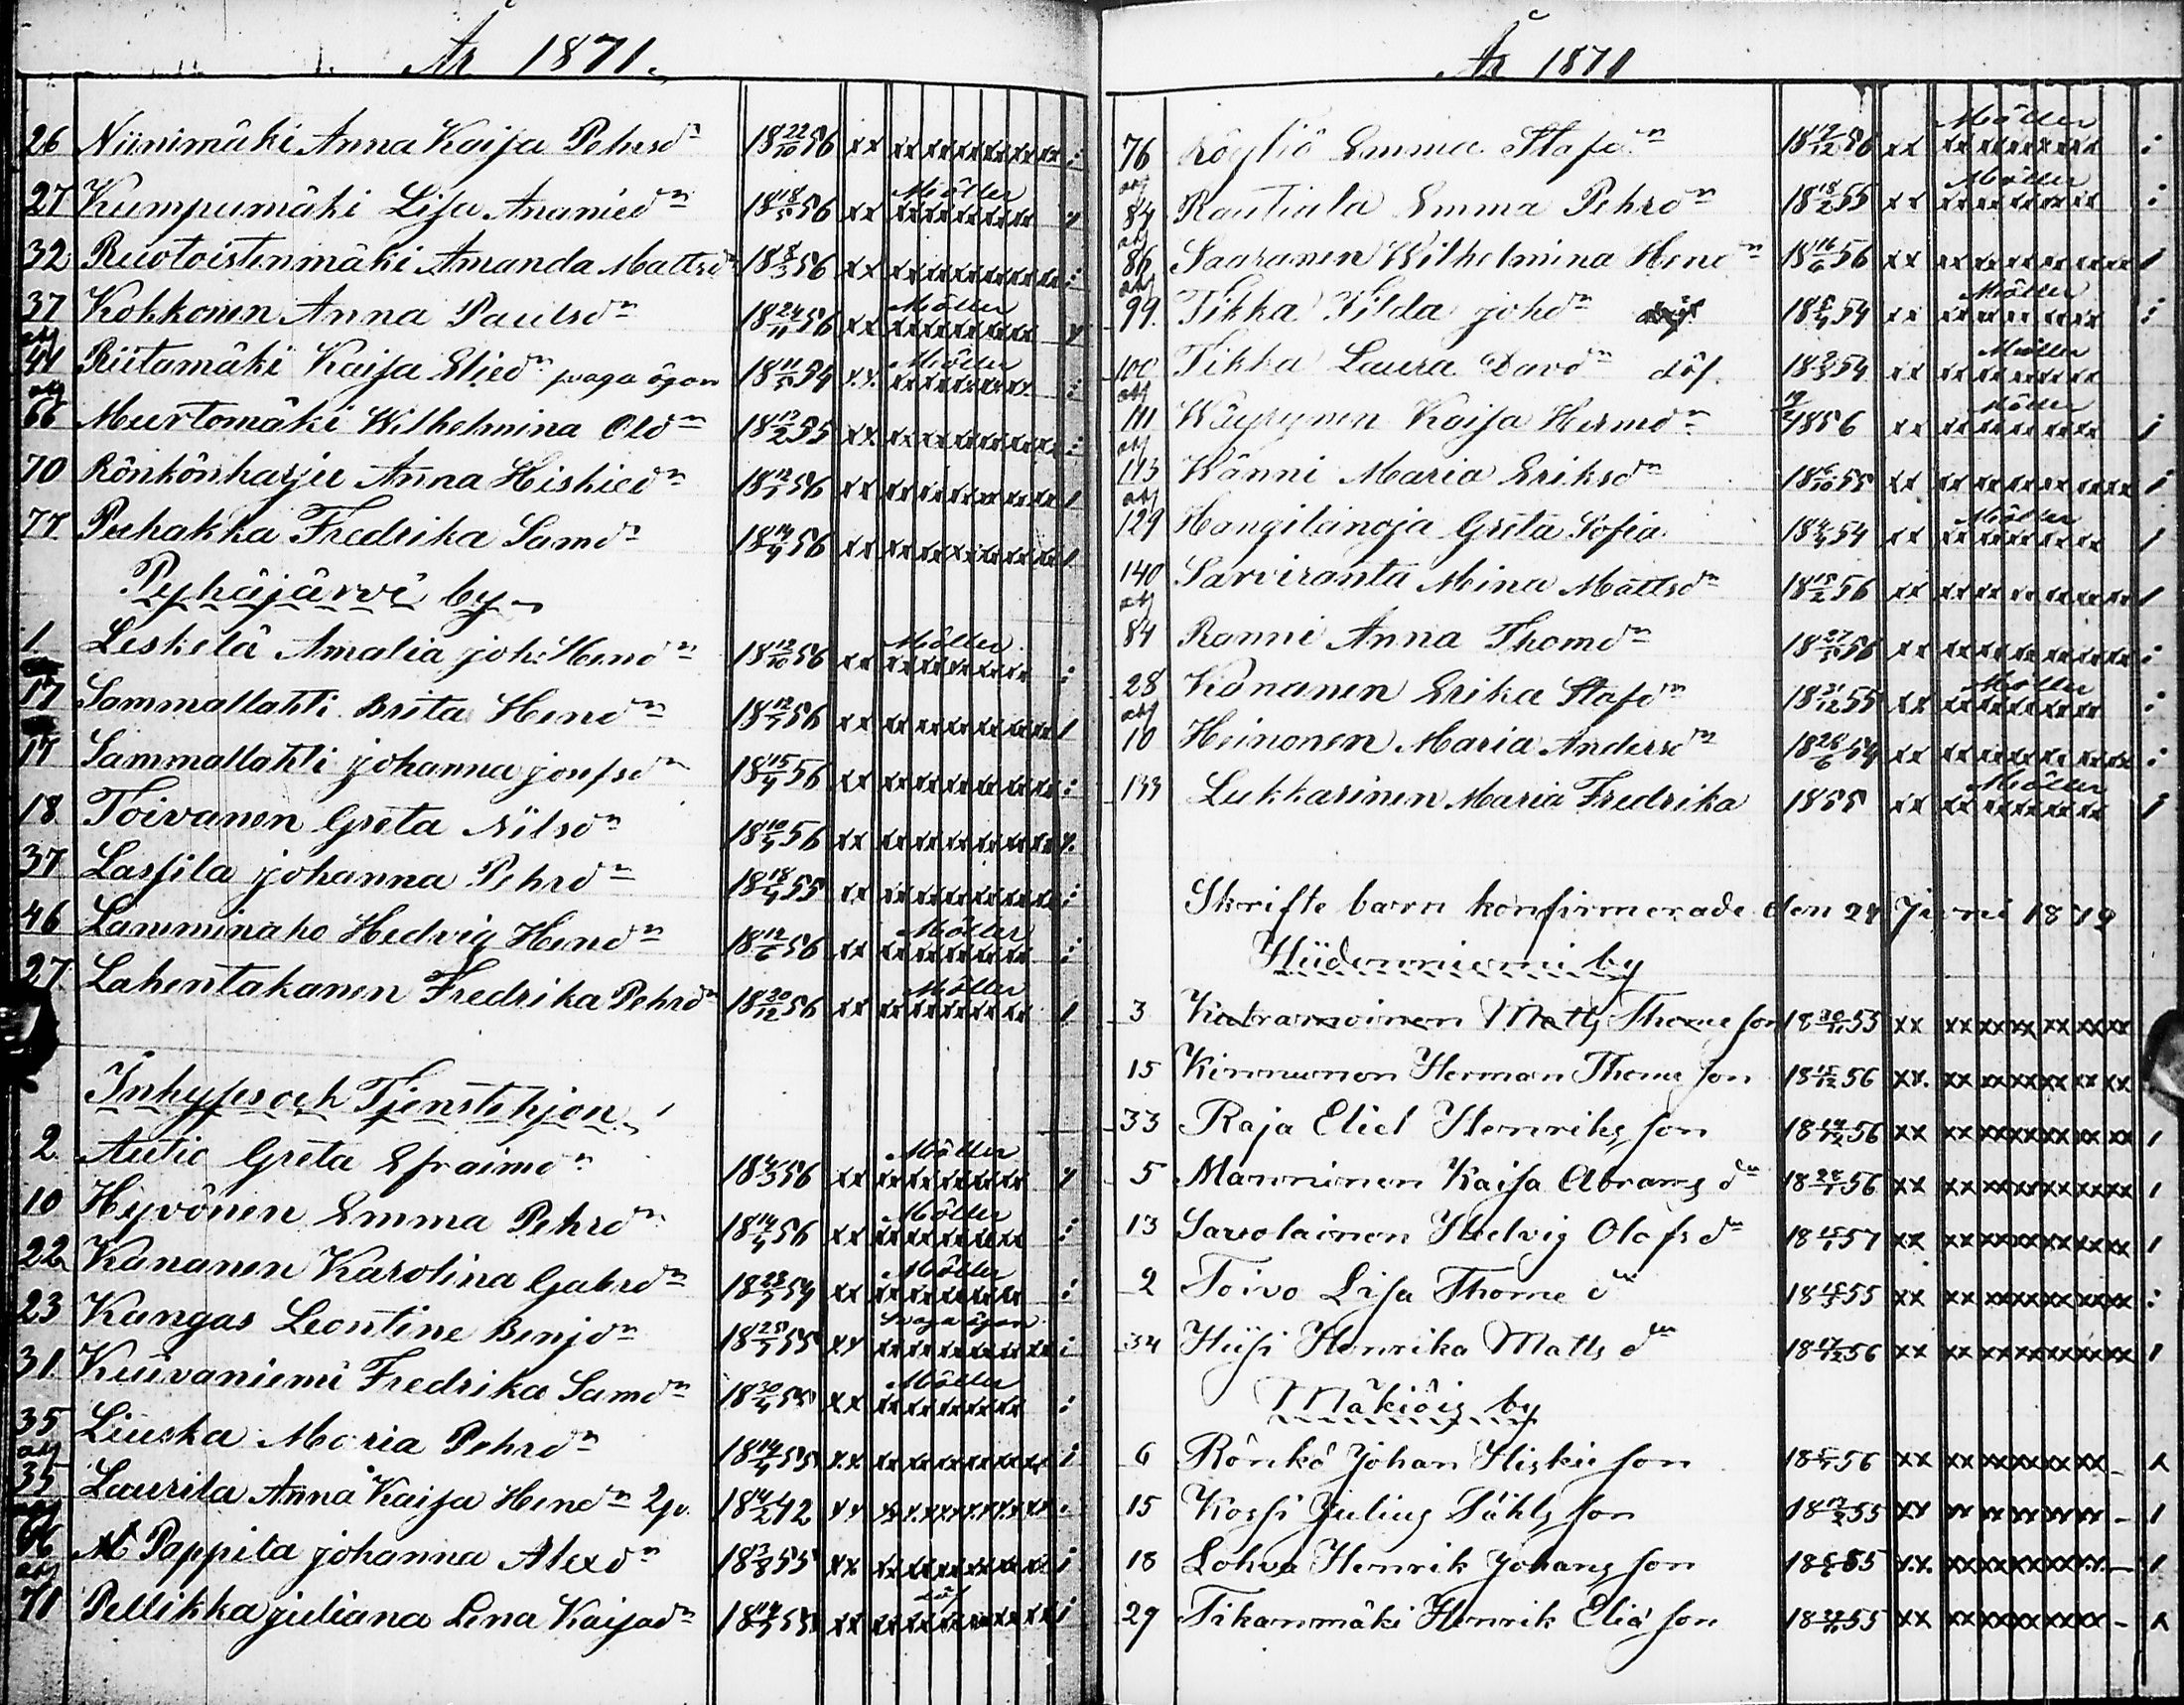 År 1871.
26 Niinimäki Anna Kaisa Pehrsdn 18 22/10 56 xx xxxxxxxxxx
27 Kumpumäki Lisa Ananiedn 18 18/5 56 xx Mötter xxxxxxxx
32 Ruotoistenmäki Amanda Mattsdn 18 8/3 56 xx xxxxxxxxxx
37 Kokkonen Anna Paulsdn 18 24/11 56 xx Mötter xxxxxxxx
41 Riitamäki Kaisa Eliedn svaga ögon 18 11/5 54 xx Mötter xxxxxxxx
66 Murtomäki Wilhelmina Oldn 18 12/2 55 xx xxxxxxxxxx
70 Rönkönharju Anna Hiskiedn 56 xx xxxxxxxxxx
77 Puhakka Fredrika Samdn 18 14/4 56 xx xxxxxxxxxx
Pyhäjärvi by
1 Leskelä Amalia joh: Hendn 18 12/10 56 xx Mötter xxxxxxxx
17 Sammallahti Brita Hendn 56 xx xxxxxxxxxx
17 Sammallahti johanna josefsdn 18 15/4 56 xx xxxxxxxxxx
18 Toivanen Greta Nilsdn 18 10/5 56 xx xxxxxxxxxx
37 Lassila johanna Pehrdn 18 18/4 55 xx xxxxxxxxxx
46 Lamminaho Hedvig Hendn 18 12/6 56 xx Mötter xxxxxxxx
27 Lahentakanen Fredrika Pehrdn 18 20/12 56 xx Mötter xxxxxxxx
Inhyses och Tjenstehjon
2 Autio Greta Efraimdn 18 4/3 56 xx Mötter xxxxxxxx
10 Hyvönen Emma Pehrdn 18 14/4 56 xx Mötter xxxxxxxx
22 Kananen Karolina Gabrdn 54 xx Mötter xxxxxxxx
23 Kangas Leontine Benjdn 55 xx Svaga ögon xxxxxxxxxx
31. Kuivaniemi Fredrika Samdn 55 xx Mötter xxxxxxxx
35 Liuska Maria Pehrdn 18 14/4 55 xx xxxxxxxxxx
35 Laurila Anna Kaisa Hendn 42 xx xxxxxxxxxx
66 Pappila johanna Alexdn 18 3/8 55 xx xxxxxxxxxx
71 Pellikka juliana Lena Kaisadn 55 xx döf xxxxxxxxxx
År 1871
76 Köyliö Emma Stafdn 18 12/12 56 xx Mötter xxxxxxxx
84 Rautiala Emma Pehrdn 18 18/2 55 xx Mötter xxxxxxxx
86 Saaranen Wilhelmina Hendn 18 16/6 56 xx xxxxxxxxxx
99. Tikka Tilda johdn 54 xx Mötter xxxxxxxx
100 Tikka Laura Davdn döf. 54 xx Mötter xxxxxxxx
111 Wäyrynen Kaisa Hermdn 1856 xx Mötter xxxxxxxx
113 Wänni Maria Eriksdn 18 6/10 55 xx xxxxxxxxxx
129 Hangilanoja Greta Sofia 54 xx Mötter xxxxxxxx
140 Sarviranta Mina Mattsdn 18 15/2 56 xx xxxxxxxxxx
84 Ranni Anna Thomdn 56 xx xxxxxxxxxx
28 Kananen Erika Stafdn 18 21/12 55 xx Mötter xxxxxxxx
10 Heinonen Maria Andersdn 18 26/6 54 xx xxxxxxxxxx
133 Lukkarinen Maria Fredrika 1855 xx Mötter xxxxxxxx
Skrifte barn konfirmerade den 24 Juni 1872
Hiidenniemi by
3 Katramoinen Matts Thomeson 55 xx xx xx xx xx xx
15 Kinnunen Herman Thomeson 18 15/12 56 xx. xx xx xx xx xx
33 Raja Eliel Henriksson 56 xx xx xx xx xx xx
5 Manninen Kaisa Abramsdn 56 xx xx xx xx xx xx
13 Savolainen Hedvig Olofsdn 57 xx xx xx xx xx xx
2 Toivo Lisa Thomedn 55 xx xx xx xx xx xx
34 Hiisi Henrika Mattsdn 18 17/12 56 xx xx xx xx xx xx
Mäkiöis by
6 Rönkö Johan Hiskieson 56 xx xx xx xx xx
15 Kossi Julius Ståhlsson 55 xx xx xx xx xx
18 Lohva Henrik Johansson 55 xx xx xx xx xx
29 Tikanmäki Henrik Eliasson 55 xx xx xx xx xx